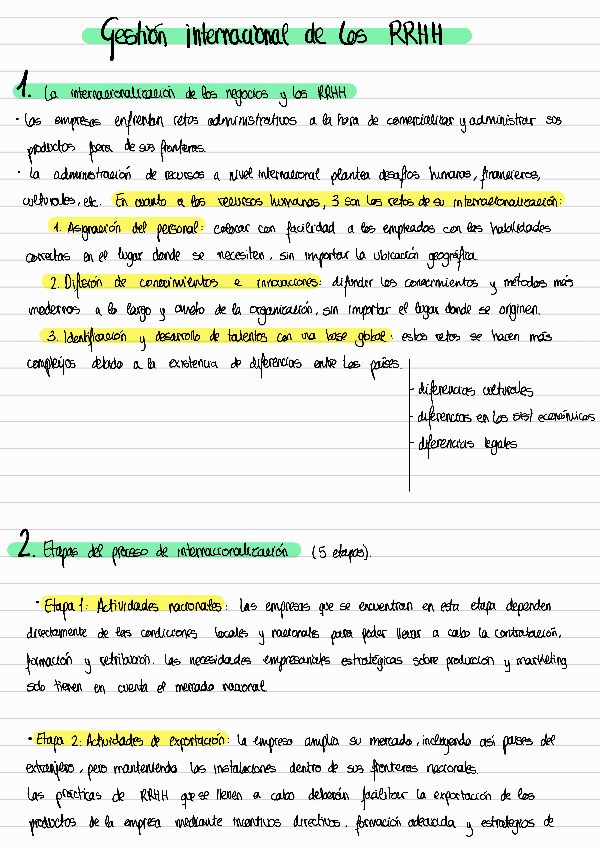 Gestión internacional de los RRHH
1. La internacionalización de los negocios y los RRHH
· Las empresas enfrentan retos administrativos a la hora de comercializar y administrar sus
productos fuera de sus fronteras.
· La administración de recursos a nivel internacional plantea desafíos humanos, financieros,
culturales, etc. En cuanto a los recursos humanos, 3 son los retos de su internacionalización:
1. Asignación del personal: colocar con facilidad a los empleados con las habilidades
correctas en el lugar donde se necesiten, sin importar la ubicación geográfica.
2. Difusión de conocimientos e innovaciones: difundir los conocimientos y métodos más
modernos a lo largo y ancho de la organización, sin importar el lugar donde se originen.
3. Identificación y desarrollo de talentos con una base global: estos retos se hacen más
complejos debido a la existencia de diferencias entre los países.
- diferencias culturales
- diferencias en los sist económicos
- diferencias legales
2. Etapas del proceso de internacionalización (5 etapas).
· Etapa 1: Actividades nacionales: las empresas que se encuentran en esta etapa dependen
directamente de las condiciones locales y nacionales para poder llevar a cabo la contratación,
formación y retribución. Las necesidades empresariales estratégicas sobre producción y marketing
solo tienen en cuenta el mercado nacional.
· Etapa 2: Actividades de exportación: la empresa amplía su mercado, incluyendo así países del
extranjero, pero manteniendo las instalaciones dentro de sus fronteras nacionales.
Las prácticas de RRHH que se lleven a cabo deberán facilitar la exportación de los
productos de la empresa mediante incentivos directivos, formación adecuada y estrategias de